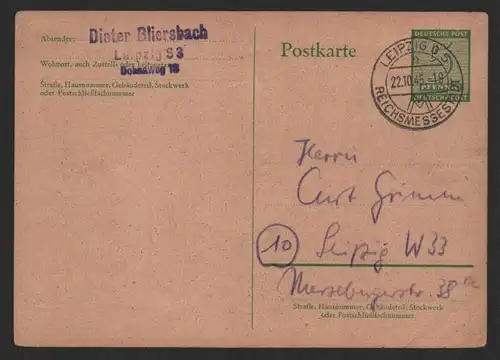 Absender:
Dieter Bliersbach
Leipzig S 3
Wohnort, auch Zustell- oder
Dohnaweg 18
Straße, Hausnummer, Gebäudeteil, Stockwerk
oder Postschließfachnummer
Postkarte
DEUTSCHE POST
LEIPZIG
22.10.45.-18
REICHSMESSESTADT
DEUTSCHE POST
Herrn
Curt Grimm
10
Leipzig W33
Merseburgerstr. 38
Straße, Hausnummer, Gebäudeteil, Stockwerk
oder Postschließfachnummer